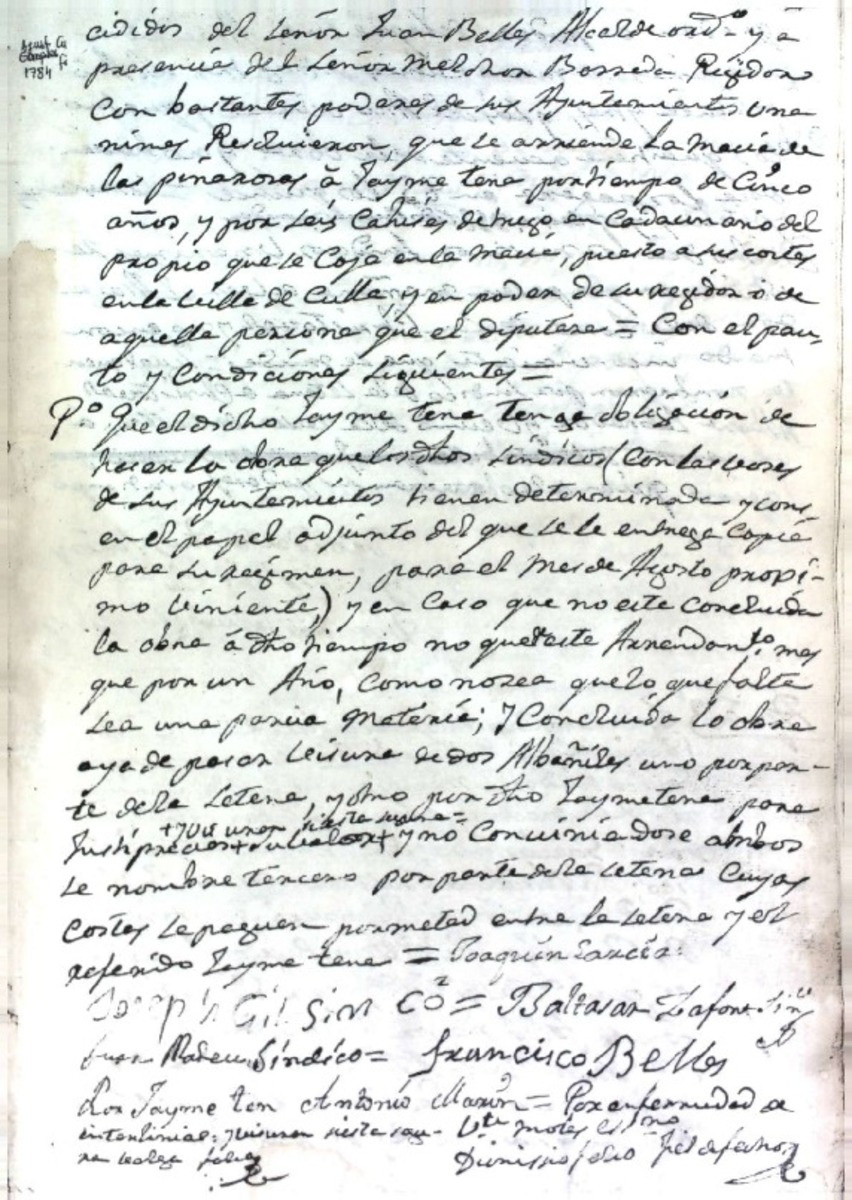 1784
cididos del Señor Juan Belles Alcalde ord.º y a
presencia del Señor Melchor Borreda Rejidor
con bastantes poderes de sus Ajuntamientos una
nimes Resolvieron, que se arriende la Macia de
las piñarosas à Jayme tena por tiempo de Cinco
años, y por seis Cahises de trigo en cada un año del
propio que se Coja en la Macia, puesto a sus costes
en la Villa de Culla, y en poder de su regidor o de
aquella persona que el diputare = Con el pau-
to y Condiciones siguientes =
P.º Que el dicho Jayme tena tenga obligación de
haser la obra que los dhos Sindicos (con las veses
de sus Ajuntamientos tienen determinada y cons
en el papel adjunto del que se le entrega Copia
para su regimen, para el Mes de Agosto proxi-
mo Viniente,) y en Caso que no este Concluida
la obra à dho tiempo no queste Arrendam.to mas
que por un Año, como no sea que lo que falta
sea una parva materia; y Concluida la obra
aya de pasar Veisura de dos Albañiles uno por par-
te de la Setena, y otro por dho Jayme tena para
Justipreciar su valor y no Conviniadose ambos
se nombre tercero por parte de la Setena Cuyas
costes se paguen por metad entre la Setena y el
referido Jayme tena = Joaquin Garcia:
Joseph Gil Sindico = Baltasar Zafont Sin
Juan Madeu Sindico = francisco Belles
Por Jayme ten Antonio Marin = Por enfermedad de
Dionisio fabio fiel de fechos